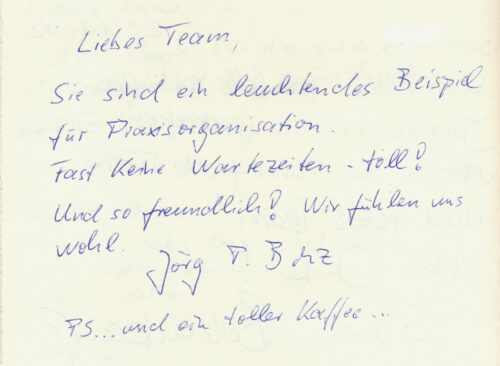 Liebes Team,
Sie sind ein leuchtendes Beispiel
für Praxisorganisation.
Fast keine Wartezeiten - toll!
Und so freundlich! Wir fühlen uns
wohl.
Jörg T.
PS... und ein toller Kaffee...